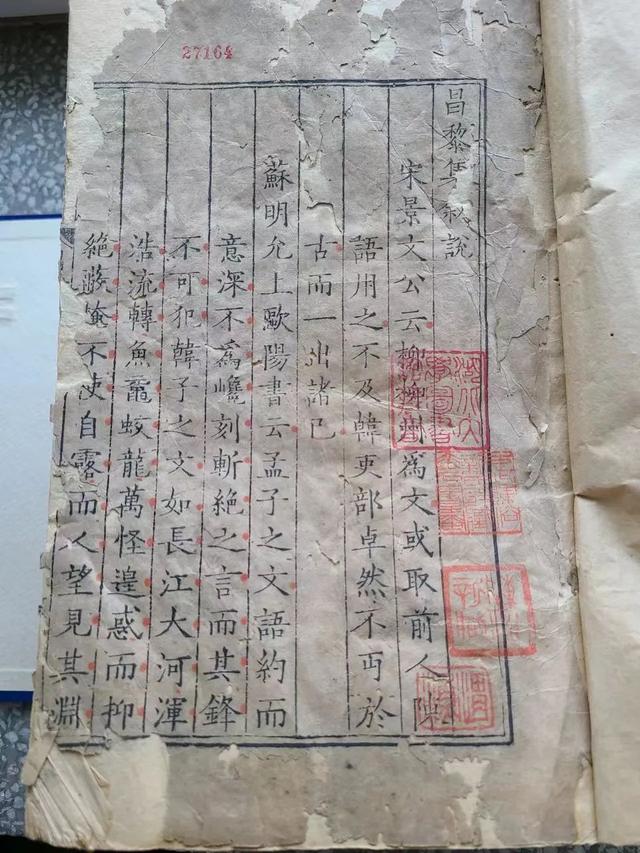 27164
昌黎集叙說
宋景文公云柳柳州爲文或取前人陳
語用之不及韓吏部卓然不丐於
古而一出諸己
蘇明允上歐陽書云孟子之文語約而
意深不爲巉刻斬絶之言而其鋒
不可犯韓子之文如長江大河渾
浩流轉魚黿蛟龍萬怪遑惑而抑
絶蔽掩不使自露而人望見其淵